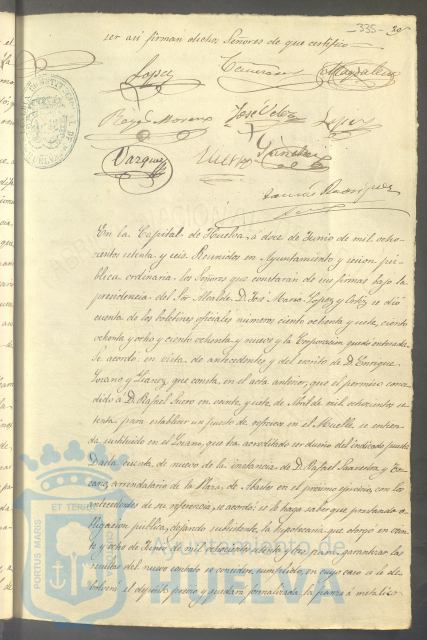 335 - 30
ser asi firman dichos Señores de que certifico
Lopez
Magdalena
Rey Moreno
José Velez
Lopez
Vazquez
Sanchez
Tomás Rodriguez
En la Capital de Huelva á doce de Junio de mil ocho-
cientos setenta y seis. Reunidos en Ayuntamiento y sesion pú-
blica ordinaria los Señores que constarán de sus firmas bajo la
presidencia del Sor. Alcalde D. José Maria Lopez y Cortez se dió
cuenta de los boletines oficiales numeros ciento ochenta y siete, ciento
ochenta y ocho y ciento ochenta y nueve y la Corporacion quedó enterada.
Se acordó en vista de antecedentes y del escrito de D. Enrique
Lozano y que consta en el acta anterior, que el permiso conce-
dido á D. Rafael en veinte y siete de Abril de mil ochocientos se-
tenta para establecer un puesto de refrescos en el Muelle, se entien-
da sustituido en el Lozano, que ha acreditado ser dueño del indicado puesto
Dada cuenta de nuevo de la instancia de D. Rafael Saavedra y
arrendatario de la Plaza de Abastos en el próximo ejercicio, con los
antecedentes de su referencia, se acordó: se le haga saber que prestando o-
bligacion publica, dejando subsistente la hipotecaria que otorgó en vein-
te y ocho de Junio de mil ochocientos setenta y para garantizar las
resultas del nuevo contrato se considera cumplido, en cuyo caso se le de-
volverá el depósito previo y quedará formalizada la fianza á metálico
Ayuntamiento de
HUELVA
PORTUS MARIS
ET TERRAE